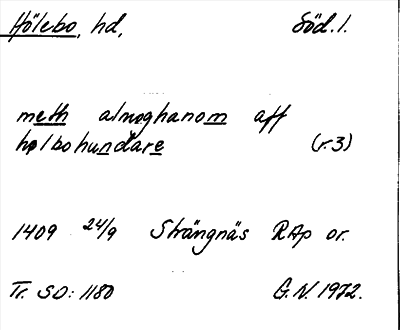 Hölebo, hd, Söd. l.
meth almoghanom aff
hølbohundare (r. 3)
1409 24/9 Strängnäs RAp or.
Tr. SD: 1180 G.N. 1972.